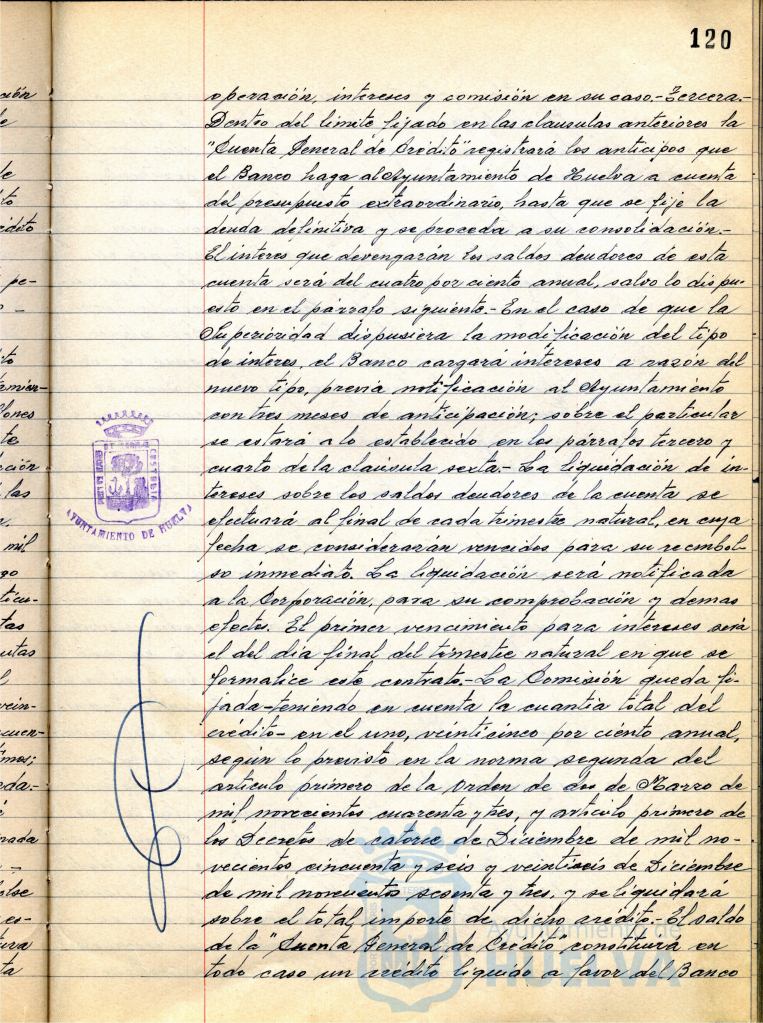 120
operación, intereses y comisión en su caso.- Tercera.-
Dentro del límite fijado en las clausulas anteriores la
"Cuenta General de Crédito" registrará los anticipos que
el Banco haga al Ayuntamiento de Huelva a cuenta
del presupuesto extraordinario, hasta que se fije la
deuda definitiva y se proceda a su consolidación.-
El interes que devengarán los saldos deudores de esta
cuenta será del cuatro por ciento anual, salvo lo dispu-
esto en el párrafo siguiente.- En el caso de que la
Superioridad dispusiera la modificación del tipo
de interes, el Banco cargará intereses a razón del
nuevo tipo, previa notificación al Ayuntamiento
con tres meses de anticipación; sobre el particular
se estará a lo establecido en los párrafos tercero y
cuarto de la clausula sexta.- La liquidación de in-
tereses sobre los saldos deudores de la cuenta se
efectuará al final de cada trimestre natural, en cuya
fecha se considerarán vencidos para su reembol-
so inmediato. La liquidación será notificada
a la Corporación, para su comprobación y demas
efectos. El primer vencimiento para intereses será
el del día final del trimestre natural en que se
formalice este contrato.- La Comisión queda fi-
jada-teniendo en cuenta la cuantia total del
crédito- en el uno, veinticinco por ciento anual,
según lo previsto en la norma segunda del
articulo primero de la Orden de dos de Marzo de
mil novecientos cuarenta y tres, y articulo primero de
los Decretos de catorce de Diciembre de mil no-
vecientos cincuenta y seis y veintiseis de Diciembre
de mil novecientos sesenta y tres, y se liquidará
sobre el total importe de dicho crédito.- El saldo
de la "Cuenta General de Crédito constituirá en
todo caso un crédito liquido a favor del Banco
AYUNTAMIENTO DE HUELVA
Ayuntamiento de
HUELVA